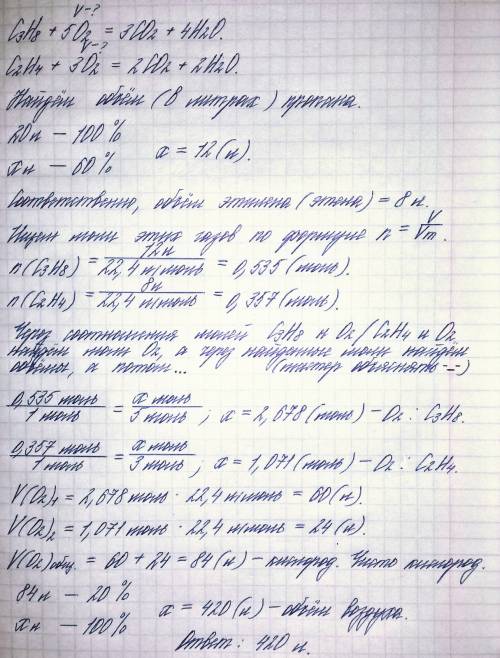 V-?
C3H8 + 5O2 = 3CO2 + 4H2O.
V-?
C2H4 + 3O2 = 2CO2 + 2H2O.
Найдём объём (в литрах) пропана.
20л – 100%
xл – 60%
x = 12 (л).
Соответственно, объём этилена (этена) = 8 л.
Ищем моли этих газов по формуле n = V/Vm.
n(C3H8) = 12л/22,4 л/моль = 0,535 (моль).
n(C2H4) = 8л/22,4 л/моль = 0,357 (моль).
Через соотношения молей C3H8 и O2 / C2H4 и O2,
найдём моли O2, а через найденные моли найдём
объёмы, а потом... (мастер объяснять -_-)
0,535 моль/1 моль = x моль/5 моль ; x = 2,678 (моль) – O2 : C3H8.
0,357 моль/1 моль = x моль/3 моль ; x = 1,071 (моль) – O2 : C2H4.
V(O2)1 = 2,678 моль · 22,4 л/моль = 60 (л).
V(O2)2 = 1,071 моль · 22,4 л/моль = 24 (л).
V(O2)общ. = 60 + 24 = 84 (л) – кислород. Чисто кислород.
84л – 20%
xл – 100%
x = 420 (л) – объём воздуха.
Ответ: 420 л.